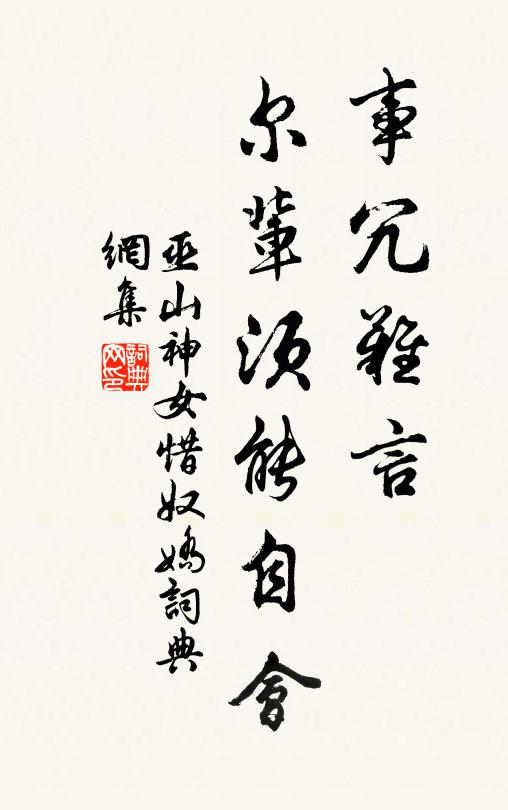 事冗難言
尔輩須能自會
巫山神女惜奴嬌詞典
網集
詞典
网印